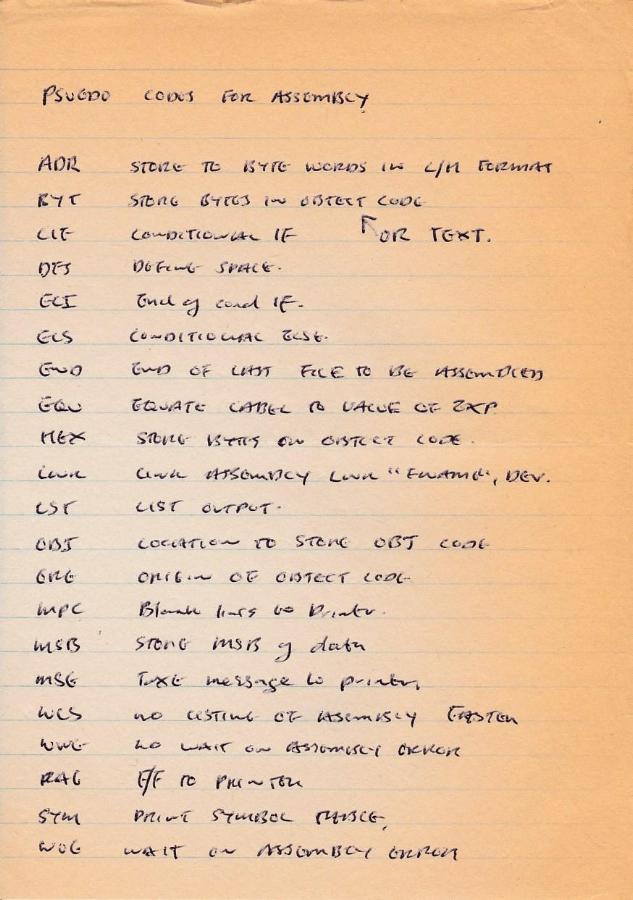 PSUEDO CODES FOR ASSEMBLY
ADR STORE TO BYTE WORDS IN L/H FORMAT
BYT STORE BYTES IN OBJECT CODE
CIF CONDITIONAL IF OR TEXT.
DFS DEFINE SPACE.
ECI End of cond IF.
ELS CONDITIONAL ELSE.
END END OF LAST FILE TO BE ASSEMBLED
EQU EQUATE LABEL TO VALUE OF EXP
HEX STORE BYTES ON OBJECT CODE.
LNK LINK ASSEMBLY LNK "FNAME", DEV.
LST LIST OUTPUT.
OBJ LOCATION TO STORE OBJ CODE
ORG ORIGIN OF OBJECT CODE
MPC Blank lines to Printer.
MSB STORE MSB of data
MSG message to printer,
NLS NO LISTING OF ASEMBLY FASTER
NWE NO WAIT ON ASSEMBLY ERROR
PAG F/F TO PRINTER
SYM PRINT SYMBOL TABLE,
WOE WAIT ON ASSEMBLY ERROR